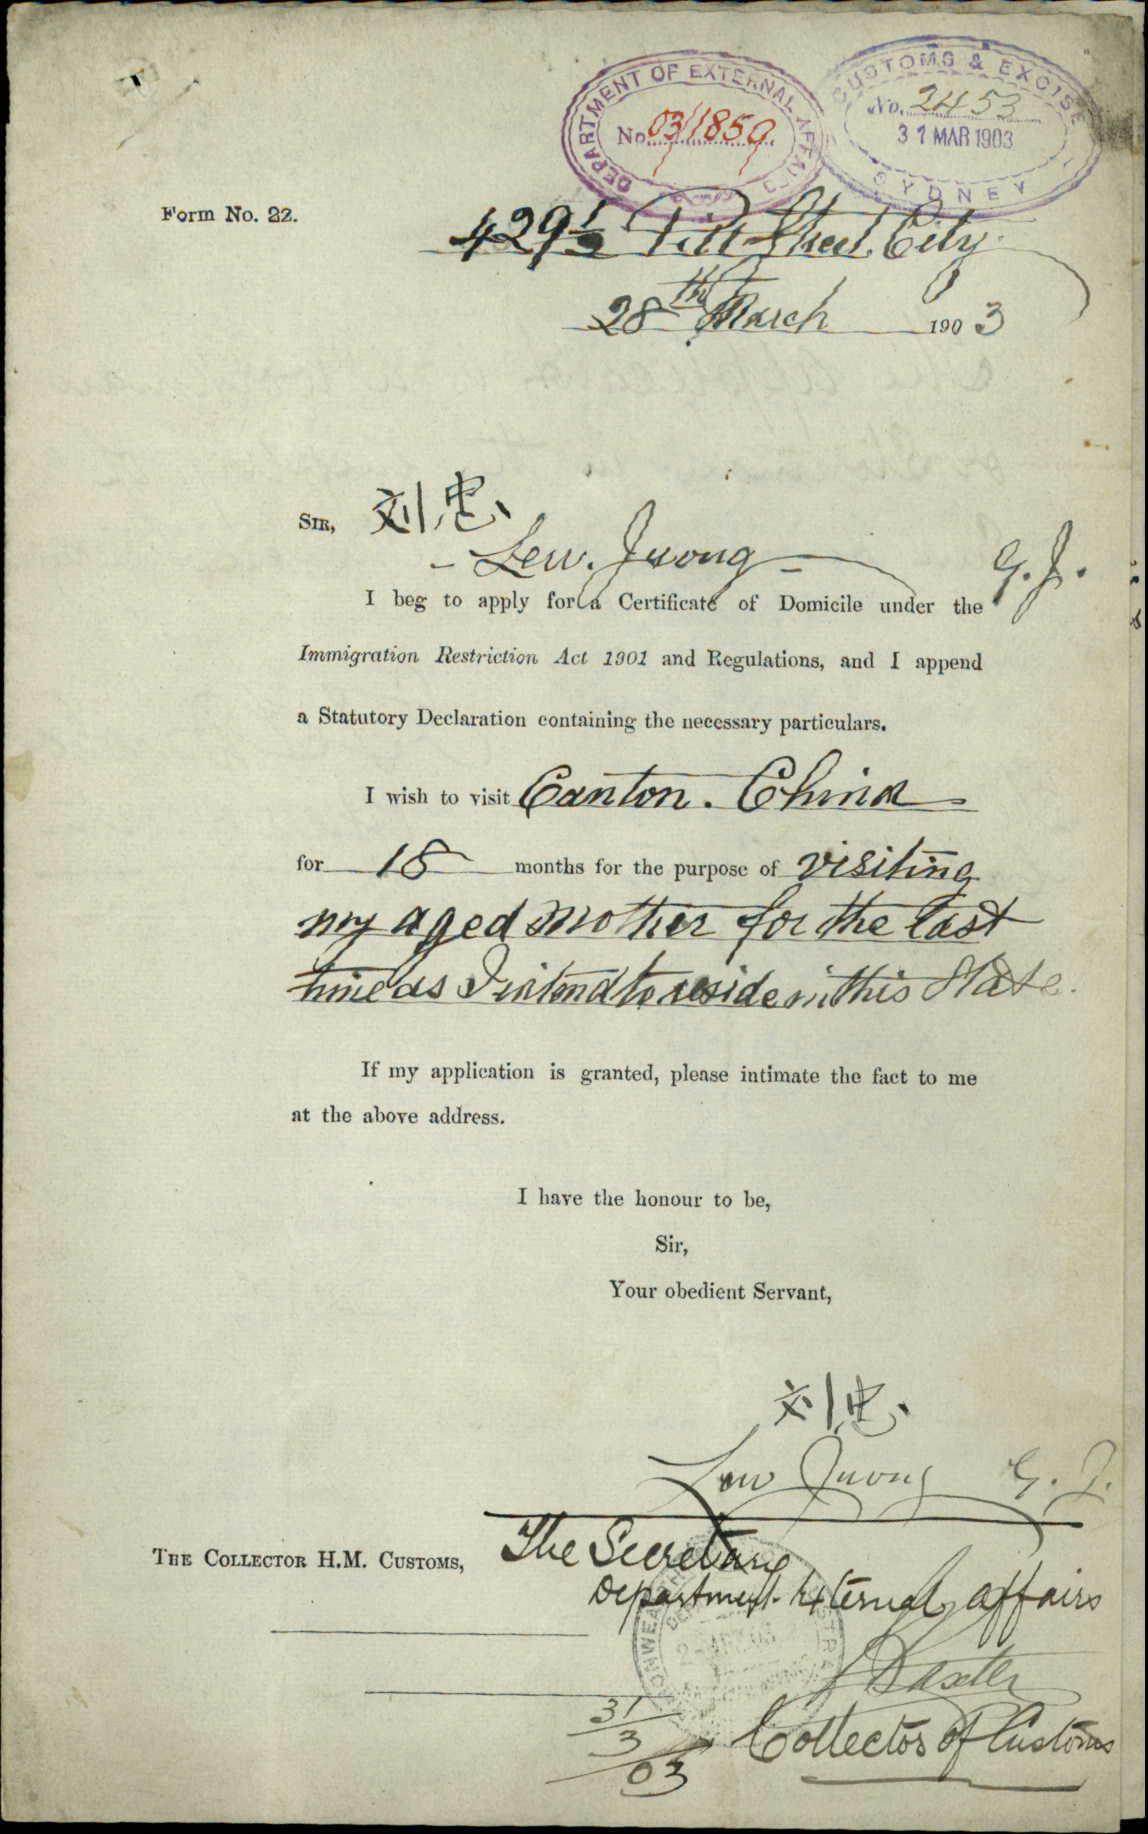 DEPARTMENT OF EXTERNAL AFFAIRS
No. 03/1859
CUSTOMS & EXCISE
No. 2453
31 MAR 1903
SYDNEY
Form No. 22.
429½ Pitt Street City
28th March 1903
SIR, 刘忠
- Lew. Juong - G. J.
I beg to apply for a Certificate of Domicile under the
Immigration Restriction Act 1901 and Regulations, and I append
a Statutory Declaration containing the necessary particulars.
I wish to visit Canton. China
for 18 months for the purpose of visiting
my aged mother for the last
time as I intend to reside in this State.
If my application is granted, please intimate the fact to me
at the above address.
I have the honour to be,
Sir,
Your obedient Servant,
刘忠
Lew Juong G. J.
THE COLLECTOR H.M. CUSTOMS, The Secretary
Department External affairs
Baxter
31/3/03 Collector of Customs